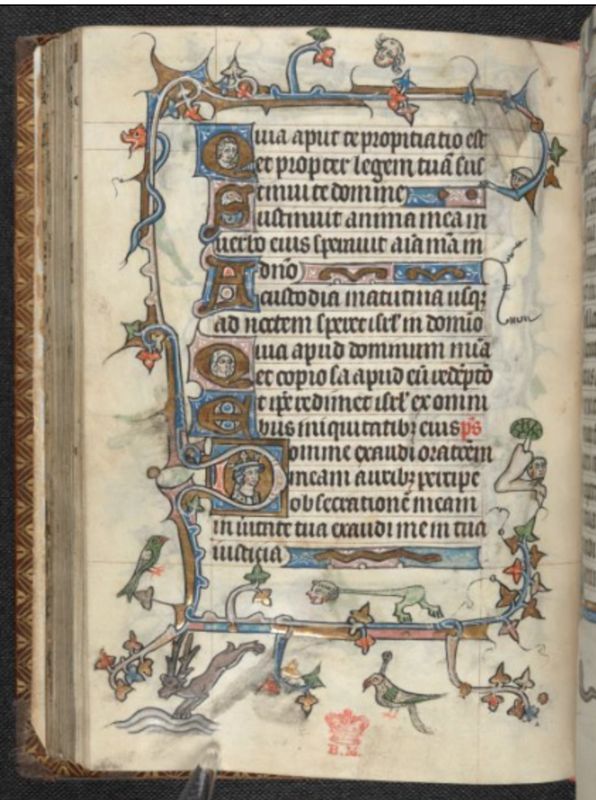 Quia aput te propitiatio est
et propter legem tuā sus
tinui te domine
Sustinuit anima mea in
uerbo eius sperauit aīa mā in
dn̄o
A custodia matutina usqȝ
ad noctem speret isrl' in domīo
Quia apud dominum mīa
et copiosa apud eū redēptō
Et ip̄e redimet isrl' ex omni
bus iniquitatibȝ eius p̄s
Domine exaudi oratōem
meam auribȝ percipe
obsecrationē meam
in ūitate tua exaudi me in tua
iusticia
B.M.